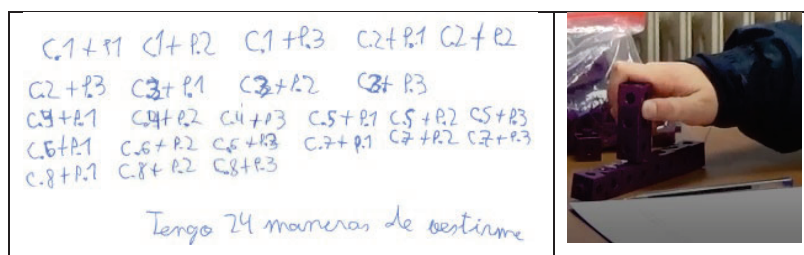 C.1+P.1 C1+P.2 C.1+P.3 C.2+P.1 C2+P.2
C.2+P.3 C3+P.1 C3+P.2 C3+P.3
C.4+P.1 C.4+P.2 C.4+P3 C.5+P.1 C.5+P.2 C.5+P.3
C.6+P.1 C.6+P.2 C.6+P.3 C.7+P.1 C.7+P.2 C.7+P.3
C.8+P.1 C.8+P.2 C.8+P.3
Tengo 24 maneras de vestirme